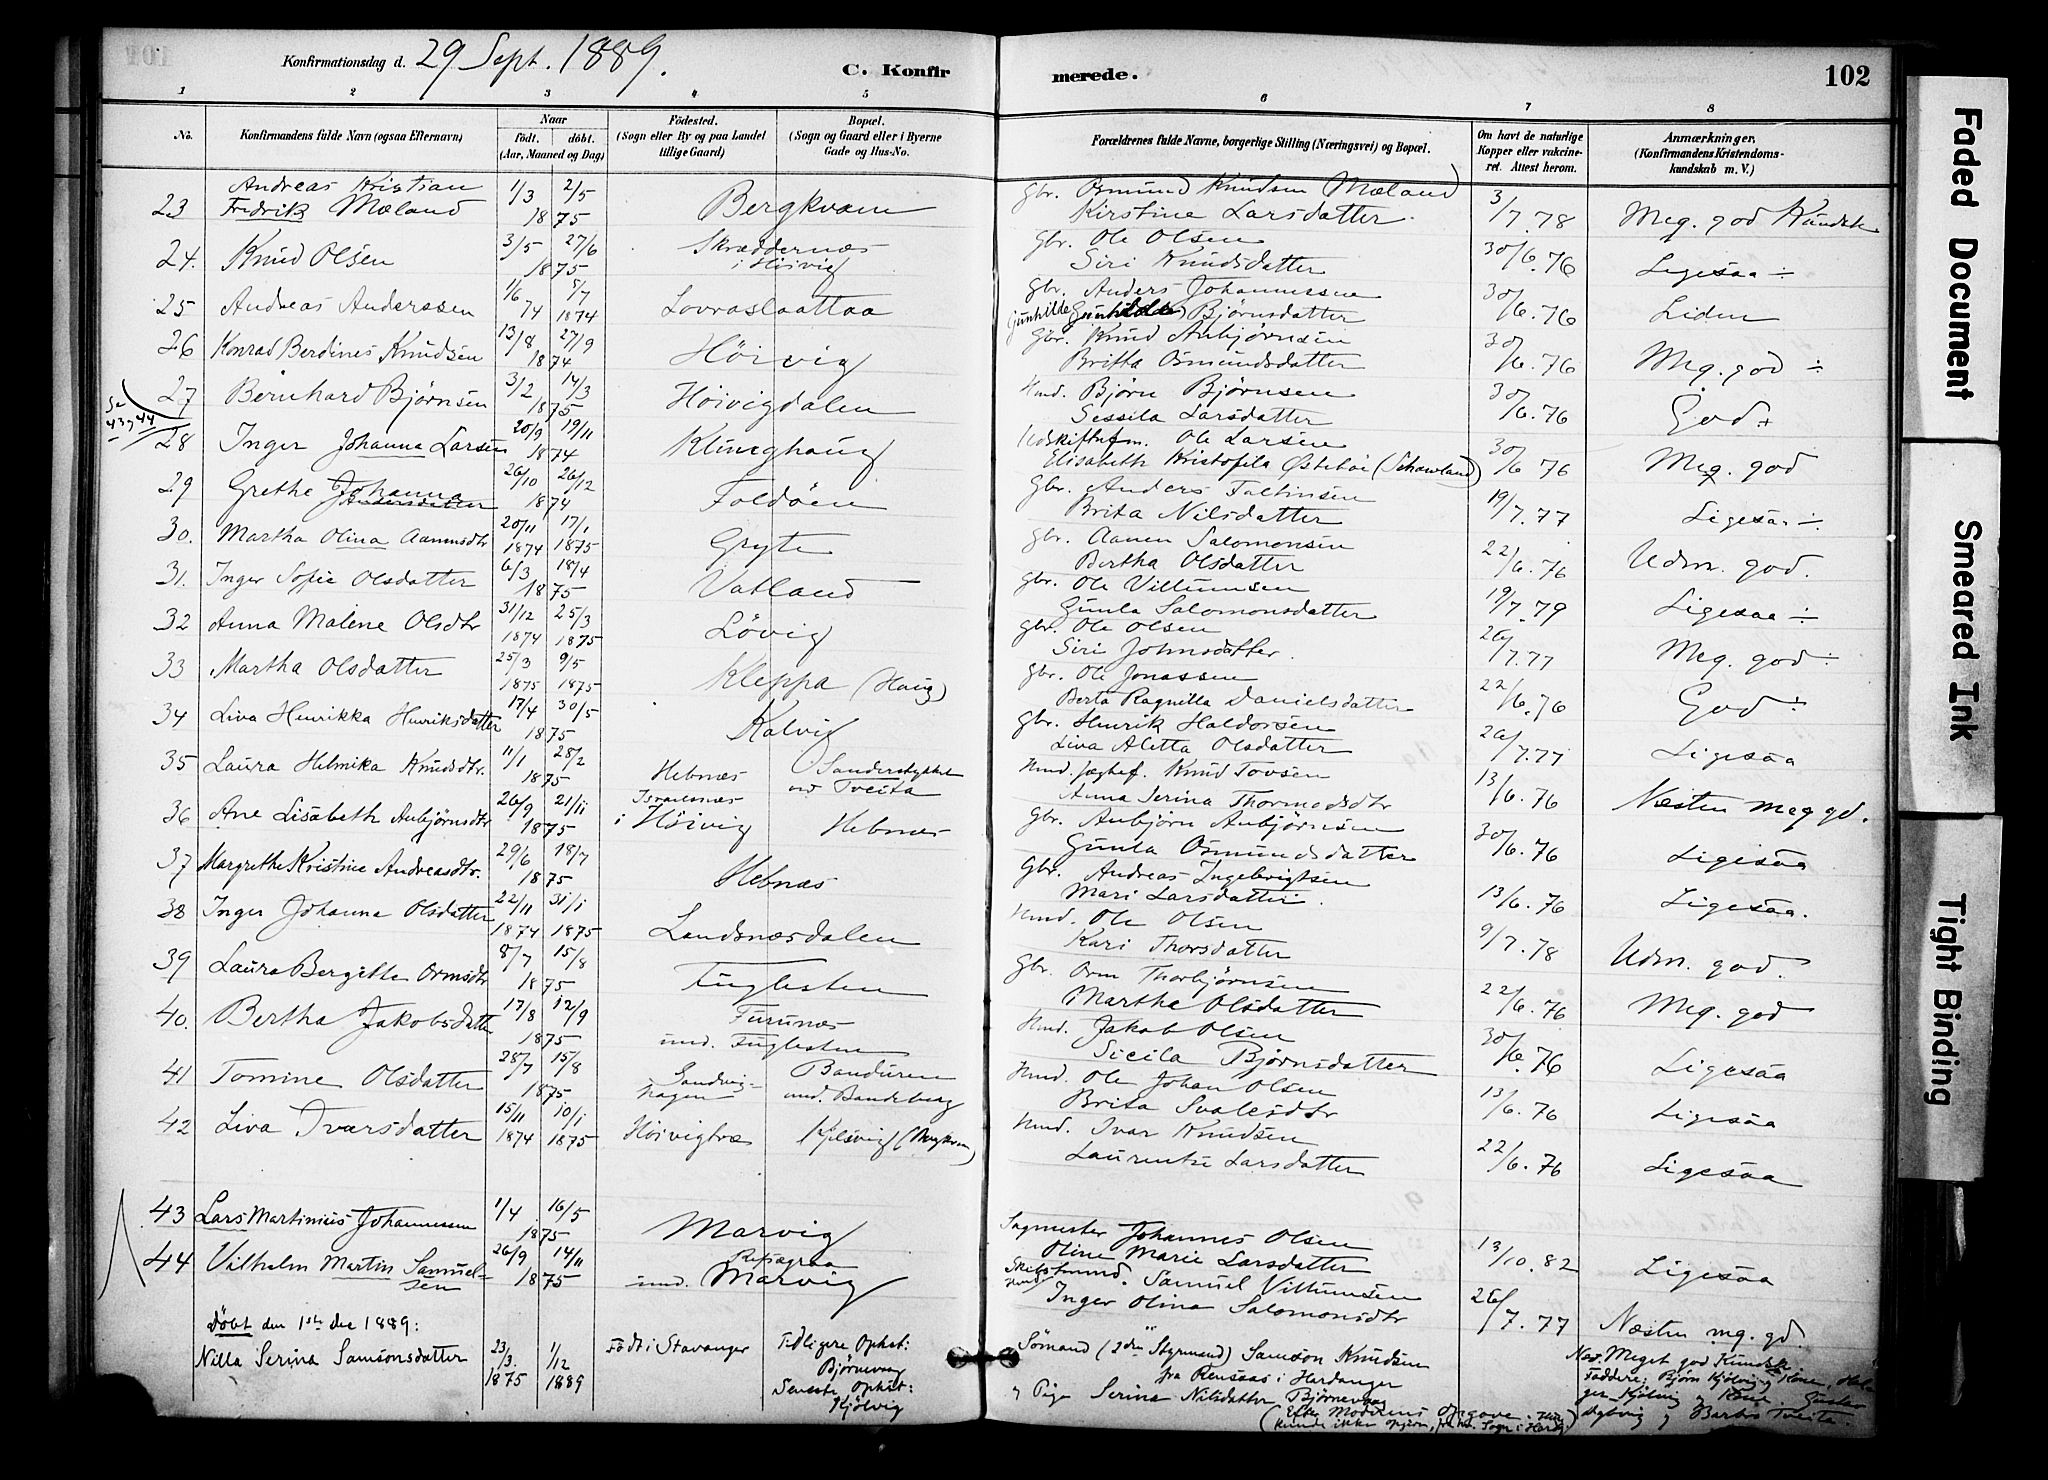 Konfirmationsdag d. 29 Sept. 1889.
C. Konfirmerede.
102
1 2 3 4 5 6 7 8
No.
Konfirmandens fulde Navn (ogsaa Efternavn)
Naar
Födt. döbt.
(Aar, Maaned og Dag)
Födested.
(Sogn eller By og paa Landet tillige Gaard)
Bopæl.
(Sogn og Gaard eller i Byerne Gade og Hus-No.
Forældrenes fulde Navne, borgerlige Stilling (Næringsvei) og Bopæl.
Om havt de naturlige Kopper eller vakcineret. Attest herom.
Anmærkninger,
(Konfirmandens Kristendomskundskab m. V.)
23 Andreas Kristian Fredrik Mæland 1/3 2/5 1875 Bergkvam Gbr. Osmund Knudsen Mæland Kirstine Larsdatter. 3/7.78 Meg. god Kundsk
24. Knud Olsen 3/5 27/6 1875 Skræddernæs i Höivig Gbr. Ole Olsen Siri Knudsdatter 30/6.76 Ligesaa ÷
25 Andreas Anderssen 1/6 74 5/7 1874 Lovraslaattaa Gbr. Anders Johannessen Gunhilde Björnsdatter 30/6.76 Liden
26 Konrad Berdines Knudsen 13/8 27/9 1874 Höivig Gbr. Knud Aubjörnsen Britta Osmundsdatter 30/6.76 Meg. god ÷
27 Bernhard Björnsen 3/2 14/3 1875 Höivigdalen Hmd. Björn Björnsen Sessila Larsdatter 30/6.76 God +
Se 43 & 44
28 Inger Johanna Larsen 20/9 19/11 1874 Klunghaug Udskiftnfm. Ole Larsen Elisabeth Kristofila Östebö (Schawland) 30/6 76 Meg. god
29 Grethe Johanna Andersdatter 26/10 26/12 1874 Foldöen Gbr. Anders Faltinsen Brita Nilsdatter 19/7.77 Ligesaa ÷
30. Martha Olina Aanensdtr 20/11 1874 17/1 1875 Gryte Gbr. Aanen Salomonsen Bertha Olsdatter 22/6.76 Udm. god.
31. Inger Sofie Olsdatter 6/3 18/4 1875 Vatland Gbr. Ole Villumsen Gunla Salomonsdatter 19/7.79 Ligesaa ÷
32 Anna Malene Olsdtr 31/12 1874 25/3 1875 Lövig Gbr. Ole Olsen Siri Johnsdatter. 26/7.77 Meg. god ÷
33 Martha Olsdatter 25/3 1875 9/5 1875 Kleppa (Haug) Gbr. Ole Jonassen Berta Ragnilla Danielsdatter 22/6.76 God ÷
34 Liva Henrikka Henriksdatter 17/4 30/5 1875 Kalvig Gbr. Henrik Haldorsen Liva Aletta Olsdatter 26/7.77 Ligesaa
35 Laura Helmika Knudsdtr. 11/1 28/2 1875 Hebnæs Sanderstykket und Tveita Hmd. Knud Tovsen Anna Serina Thormodsdtr 13/6.76 Næsten meg gd.
36 Ane Lisabeth Aubjörnsdtr 26/9 21/11 1875 Israelsnæs i Höivig Hebnæs Gbr. Aubjörn Aubjörnsen Gunla Osmundsdatter 30/6.76 Ligesaa
37 Margrethe Kristine Andreasdtr. 29/6 18/7 1875 Hebnæs Gbr. Andreas Ingebrigtsen Mari Larsdatter. 13/6.76 Ligesaa.
38 Inger Johanna Olsdatter 22/11 1874 31/1 1875 Landsnæsdalen Hmd. Ole Olsen Kari Thorsdatter 9/7.78 Udm. god.
39 Laura Bergitte Ormsdtr 8/7 15/8 1875 Fuglesten Gbr. Orm Thorbjörnsen Martha Olsdatter 22/6.76 Meg. god
40. Bertha Jakobsdatter 17/8 12/9 1875 Furunæs und. Fuglesten Hmd. Jakob Olsen Sicila Björnsdatter 30/6.76 Ligesaa
41 Tomine Olsdatter 28/7 15/8 1875 Sandvighagen Banduren und. Bandeberg Hmd. Ole Johan Olsen Brita Svalesdtr 13/6.76 Ligesaa
42 Liva Ivarsdatter 15/11 1874 10/1 1875 Höivigtræ Kjölsvig (Bergkvam) Hmd. Ivar Knudsen Laurentze Larsdatter 22/6.76 Ligesaa
43 Lars Martinius Johannessen 1/4 16/5 1875 Marvig Sagmester Johannes Olsen Oline Marie Larsdatter 13/10.82 Ligesaa
44 Vilhelm Martin Samuelsen 26/9 14/11 1875 Refsgraa und. Marvig Skibstmmd. Hmd Samuel Villumsen Inger Olina Salomonsdtr 26/7.77 Næsten mg. gd.
Döbt den 1ste Dec 1889:
Nilla Serina Samsonsdatter 23/3. 1875 1/12 1889 Födt i Stavanger Tidligere Ophst: Björnevaag Seneste Ophst: Kjölvig
Sömand (2den Styrmand) Samson Knudsen
fra Rensaas i Hardanger
og Pige Serina Nilsdatter Björnevaag
(Efter Moderens Opgave.
kunde ikke opgives, fra hv. Sogn i Hard.)
Næs. Meget god Kundsk.
Faddere: Björn Kjölvig og Kone,
Kjölvig og Kone. Gustav
og Barbro Tveita.
Faded Document
Smeared Ink
Tight Binding